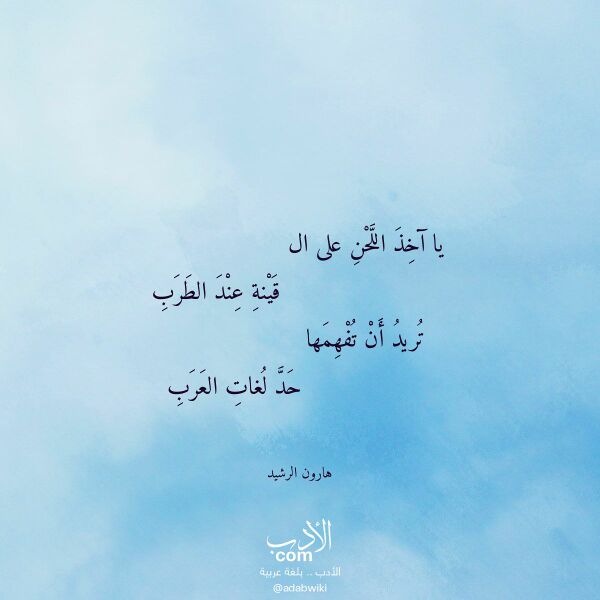 يا آخِذَ اللَّحْنِ على ال
قَيْنةِ عِنْدَ الطَرَبِ
تُريدُ أَنْ تُفْهِمَها
حَدَّ لُغاتِ العَرَبِ
هارون الرشيد
الأدب
com
الأدب .. بلغة عربية
@adabwiki